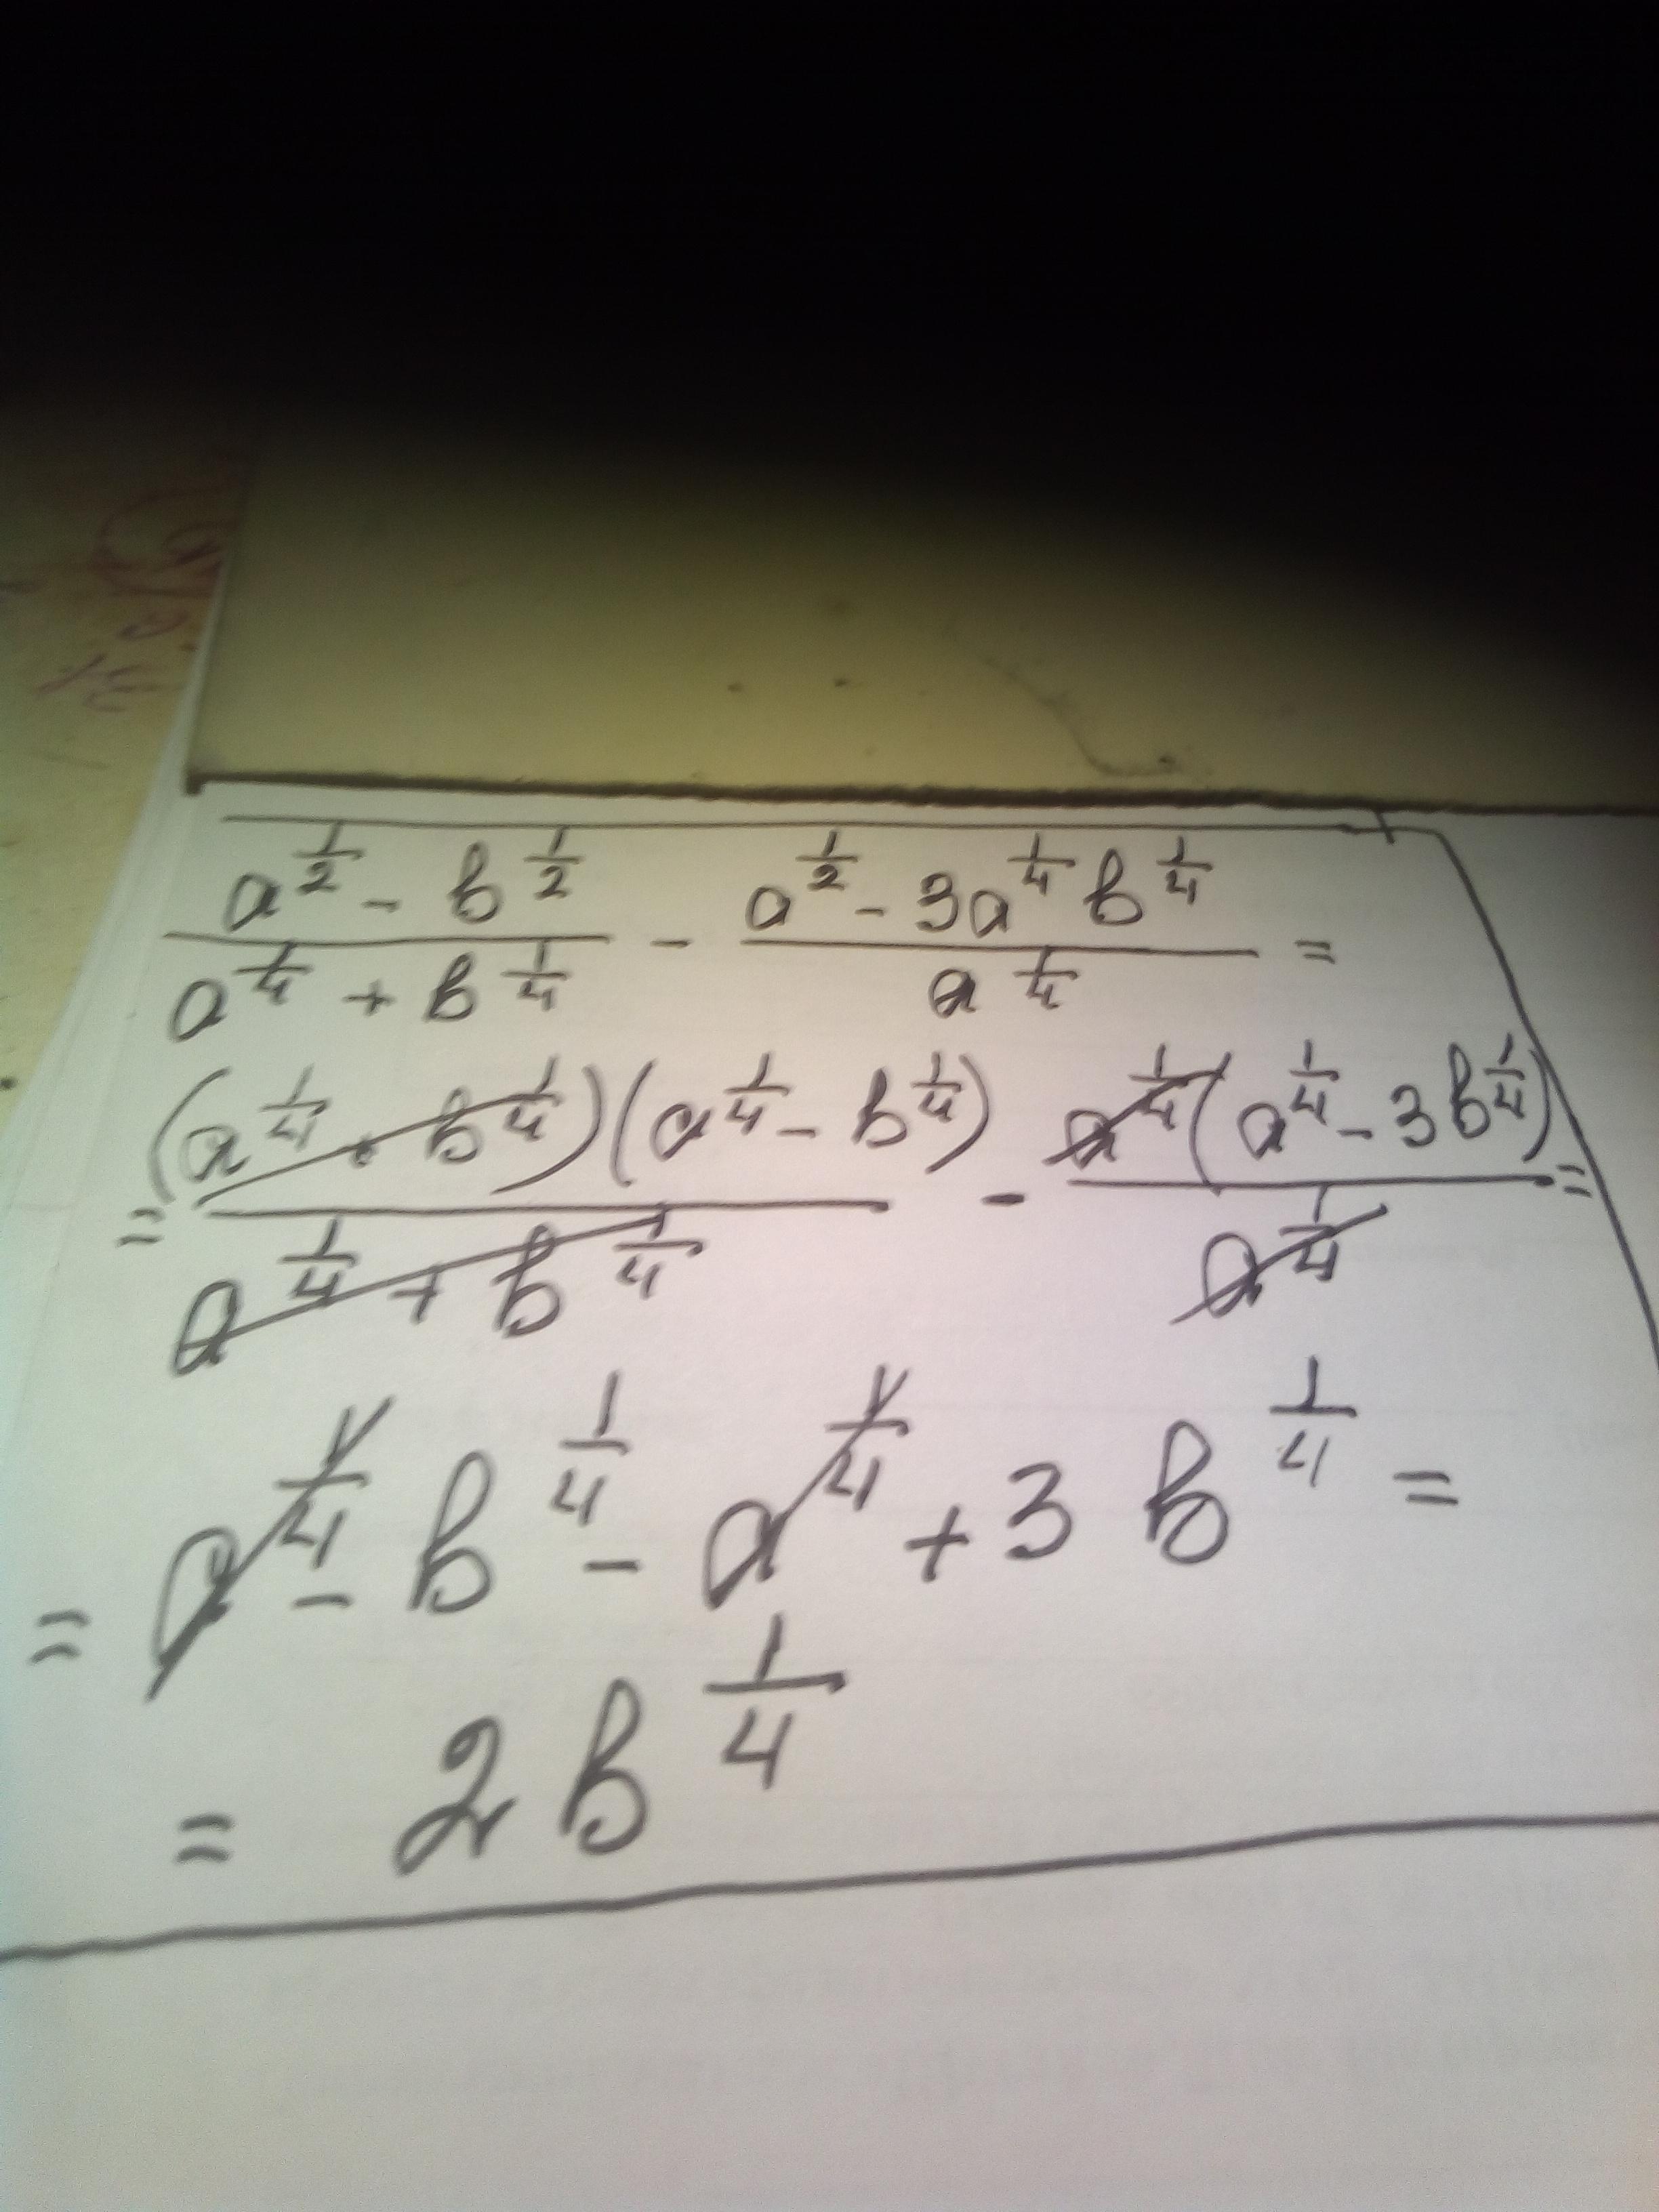 \frac{a^{\frac{1}{2}} - b^{\frac{1}{2}}}{a^{\frac{1}{4}} + b^{\frac{1}{4}}} - \frac{a^{\frac{1}{2}} - 3a^{\frac{1}{4}} b^{\frac{1}{4}}}{a^{\frac{1}{4}}} =
= \frac{(a^{\frac{1}{4}} + b^{\frac{1}{4}})(a^{\frac{1}{4}} - b^{\frac{1}{4}})}{a^{\frac{1}{4}} + b^{\frac{1}{4}}} - \frac{a^{\frac{1}{4}}(a^{\frac{1}{4}} - 3b^{\frac{1}{4}})}{a^{\frac{1}{4}}} =
= a^{\frac{1}{4}} - b^{\frac{1}{4}} - a^{\frac{1}{4}} + 3b^{\frac{1}{4}} =
= 2b^{\frac{1}{4}}